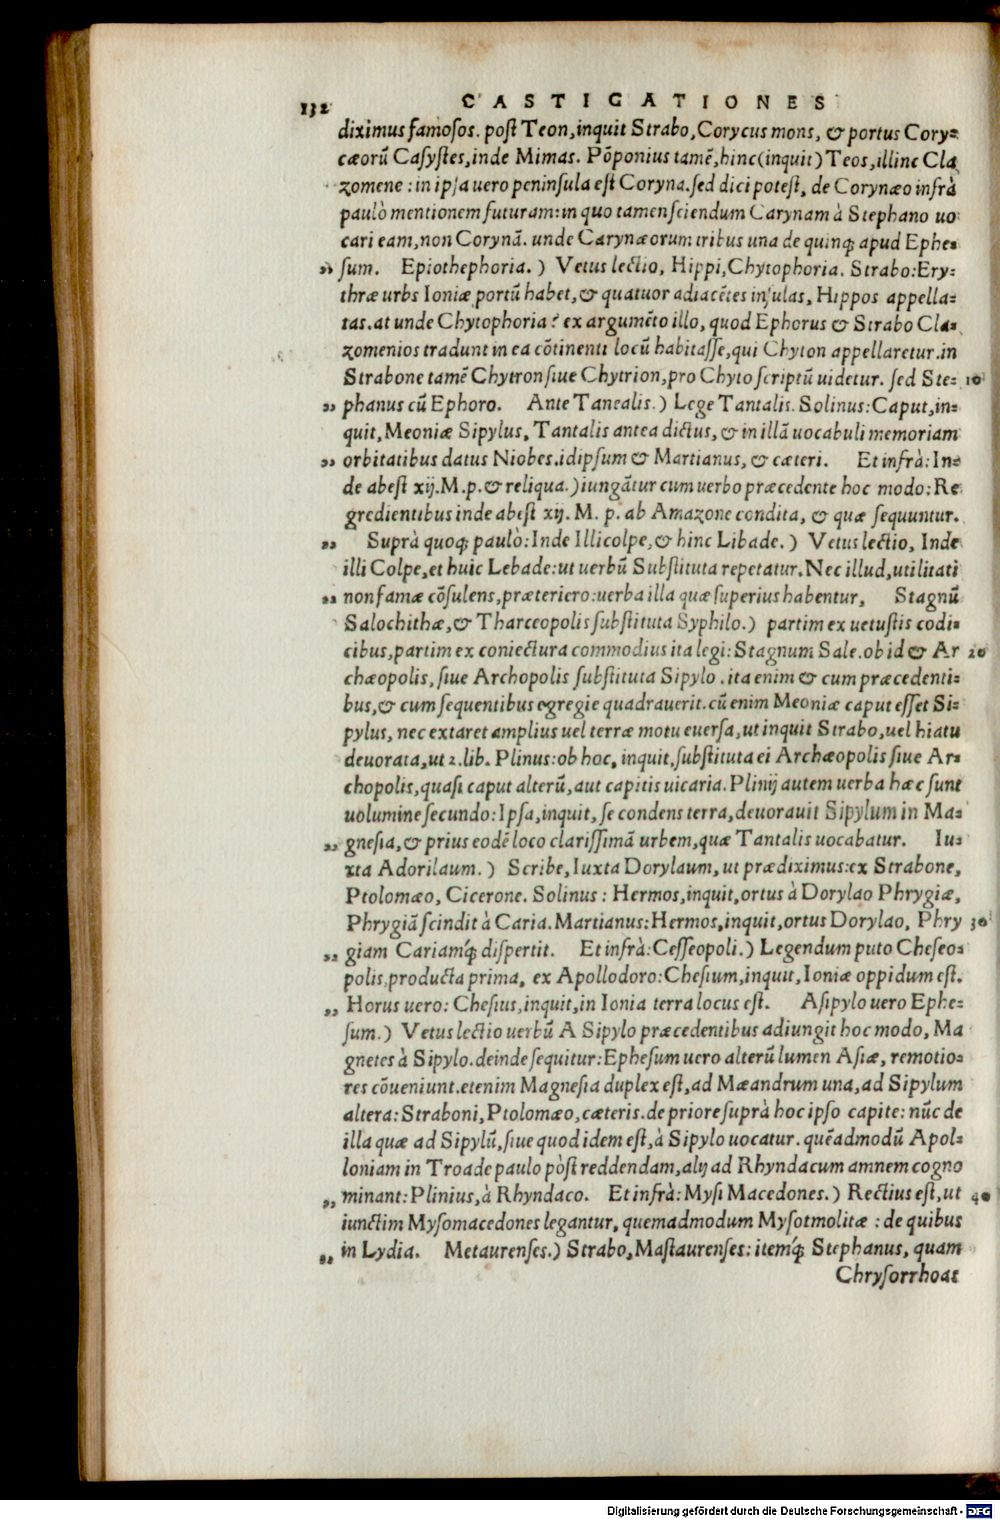 132 CASTIGATIONES
diximus famosos. post Teon, inquit Strabo, Corycus mons, & portus Cory=
cæorũ Casystes, inde Mimas. Põponius tamẽ, hinc (inquit) Teos, illinc Cla
zomene: in ipsa uero peninsula est Coryna. sed dici potest, de Corynæo infrà
paulò mentionem futuram: in quo tamen sciendum Carynam à Stephano uo
cari eam, non Corynã. unde Carynæorum tribus una de quinq; apud Ephe=
„ sum. Epiothephoria. ) Vetus lectio, Hippi, Chytophoria. Strabo: Ery=
thræ urbs Ioniæ portũ habet, & quatuor adiacẽtes insulas, Hippos appella=
tas. at unde Chytophoria? ex argumẽto illo, quod Ephorus & Strabo Cla=
zomenios tradunt in ea cõtinenti locũ habitasse, qui Chyton appellaretur. in
Strabone tamẽ Chytron siue Chytrion, pro Chyto scriptũ uidetur. sed Ste= 10
„ phanus cũ Ephoro. Ante Tanealis. ) Lege Tantalis. Solinus: Caput, in=
quit, Meoniæ Sipylus, Tantalis antea dictus, & in illã uocabuli memoriam
„ orbitatibus datus Niobes. idipsum & Martianus, & cæteri. Et infrà: In=
de abest xij. M. p. & reliqua. ) iungãtur cum uerbo præcedente hoc modo: Re
gredientibus inde abest xij. M. p. ab Amazone condita, & quæ sequuntur.
„ Suprà quoq; paulò: Inde Illicolpe, & hinc Libade. ) Vetus lectio, Inde
illi Colpe, et huic Lebade: ut uerbũ Substituta repetatur. Nec illud, utilitati
„ non famæ cõsulens, præteriero: uerba illa quæ superius habentur, Stagnũ
Salochithæ, & Tharceopolis substituta Syphilo. ) partim ex uetustis codi=
cibus, partim ex coniectura commodius ita legi: Stagnum Sale. ob id & Ar 20
chæopolis, siue Archopolis substituta Sipylo. ita enim & cum præcedenti=
bus, & cum sequentibus egregie quadrauerit. cũ enim Meoniæ caput esset Si=
pylus, nec extaret amplius uel terræ motu euersa, ut inquit Strabo, uel hiatu
deuorata, ut 2. lib. Plinus: ob hoc, inquit, substituta ei Archæopolis siue Ar=
chopolis, quasi caput alterũ, aut capitis uicaria. Plinij autem uerba hæc sunt
uolumine secundo: Ipsa, inquit, se condens terra, deuorauit Sipylum in Ma=
„ gnesia, & prius eodẽ loco clarissimã urbem, quæ Tantalis uocabatur. Iu=
xta Adorilaum. ) Scribe, Iuxta Dorylaum, ut prædiximus: ex Strabone,
Ptolomæo, Cicerone. Solinus: Hermos, inquit, ortus à Dorylao Phrygiæ,
Phrygiã scindit à Caria. Martianus: Hermos, inquit, ortus Dorylao, Phry 30
„ giam Cariamq́; dispertit. Et infrà: Cesseopoli. ) Legendum puto Cheseo=
polis, producta prima, ex Apollodoro: Chesium, inquit, Ioniæ oppidum est.
„ Horus uero: Chesius, inquit, in Ionia terra locus est. A sipylo uero Ephe=
sum. ) Vetus lectio uerbũ A Sipylo præcedentibus adiungit hoc modo, Ma
gnetes à Sipylo. deinde sequitur: Ephesum uero alterũ lumen Asiæ, remotio=
res cõueniunt. etenim Magnesia duplex est, ad Mæandrum una, ad Sipylum
altera: Straboni, Ptolomæo, cæteris. de priore suprà hoc ipso capite: nũc de
illa quæ ad Sipylũ, siue quod idem est, à Sipylo uocatur. quẽadmodũ Apol=
loniam in Troade paulo pòst reddendam, alij ad Rhyndacum amnem cogno
„ minant: Plinius, à Rhyndaco. Et infrà: Mysi Macedones. ) Rectius est, ut 40
iunctim Mysomacedones legantur, quemadmodum Mysotmolitæ: de quibus
„ in Lydia. Metaurenses. ) Strabo, Mastaurenses: itemq́; Stephanus, quam
Chrysorrhoas
Digitalisierung gefördert durch die Deutsche Forschungsgemeinschaft - DFG